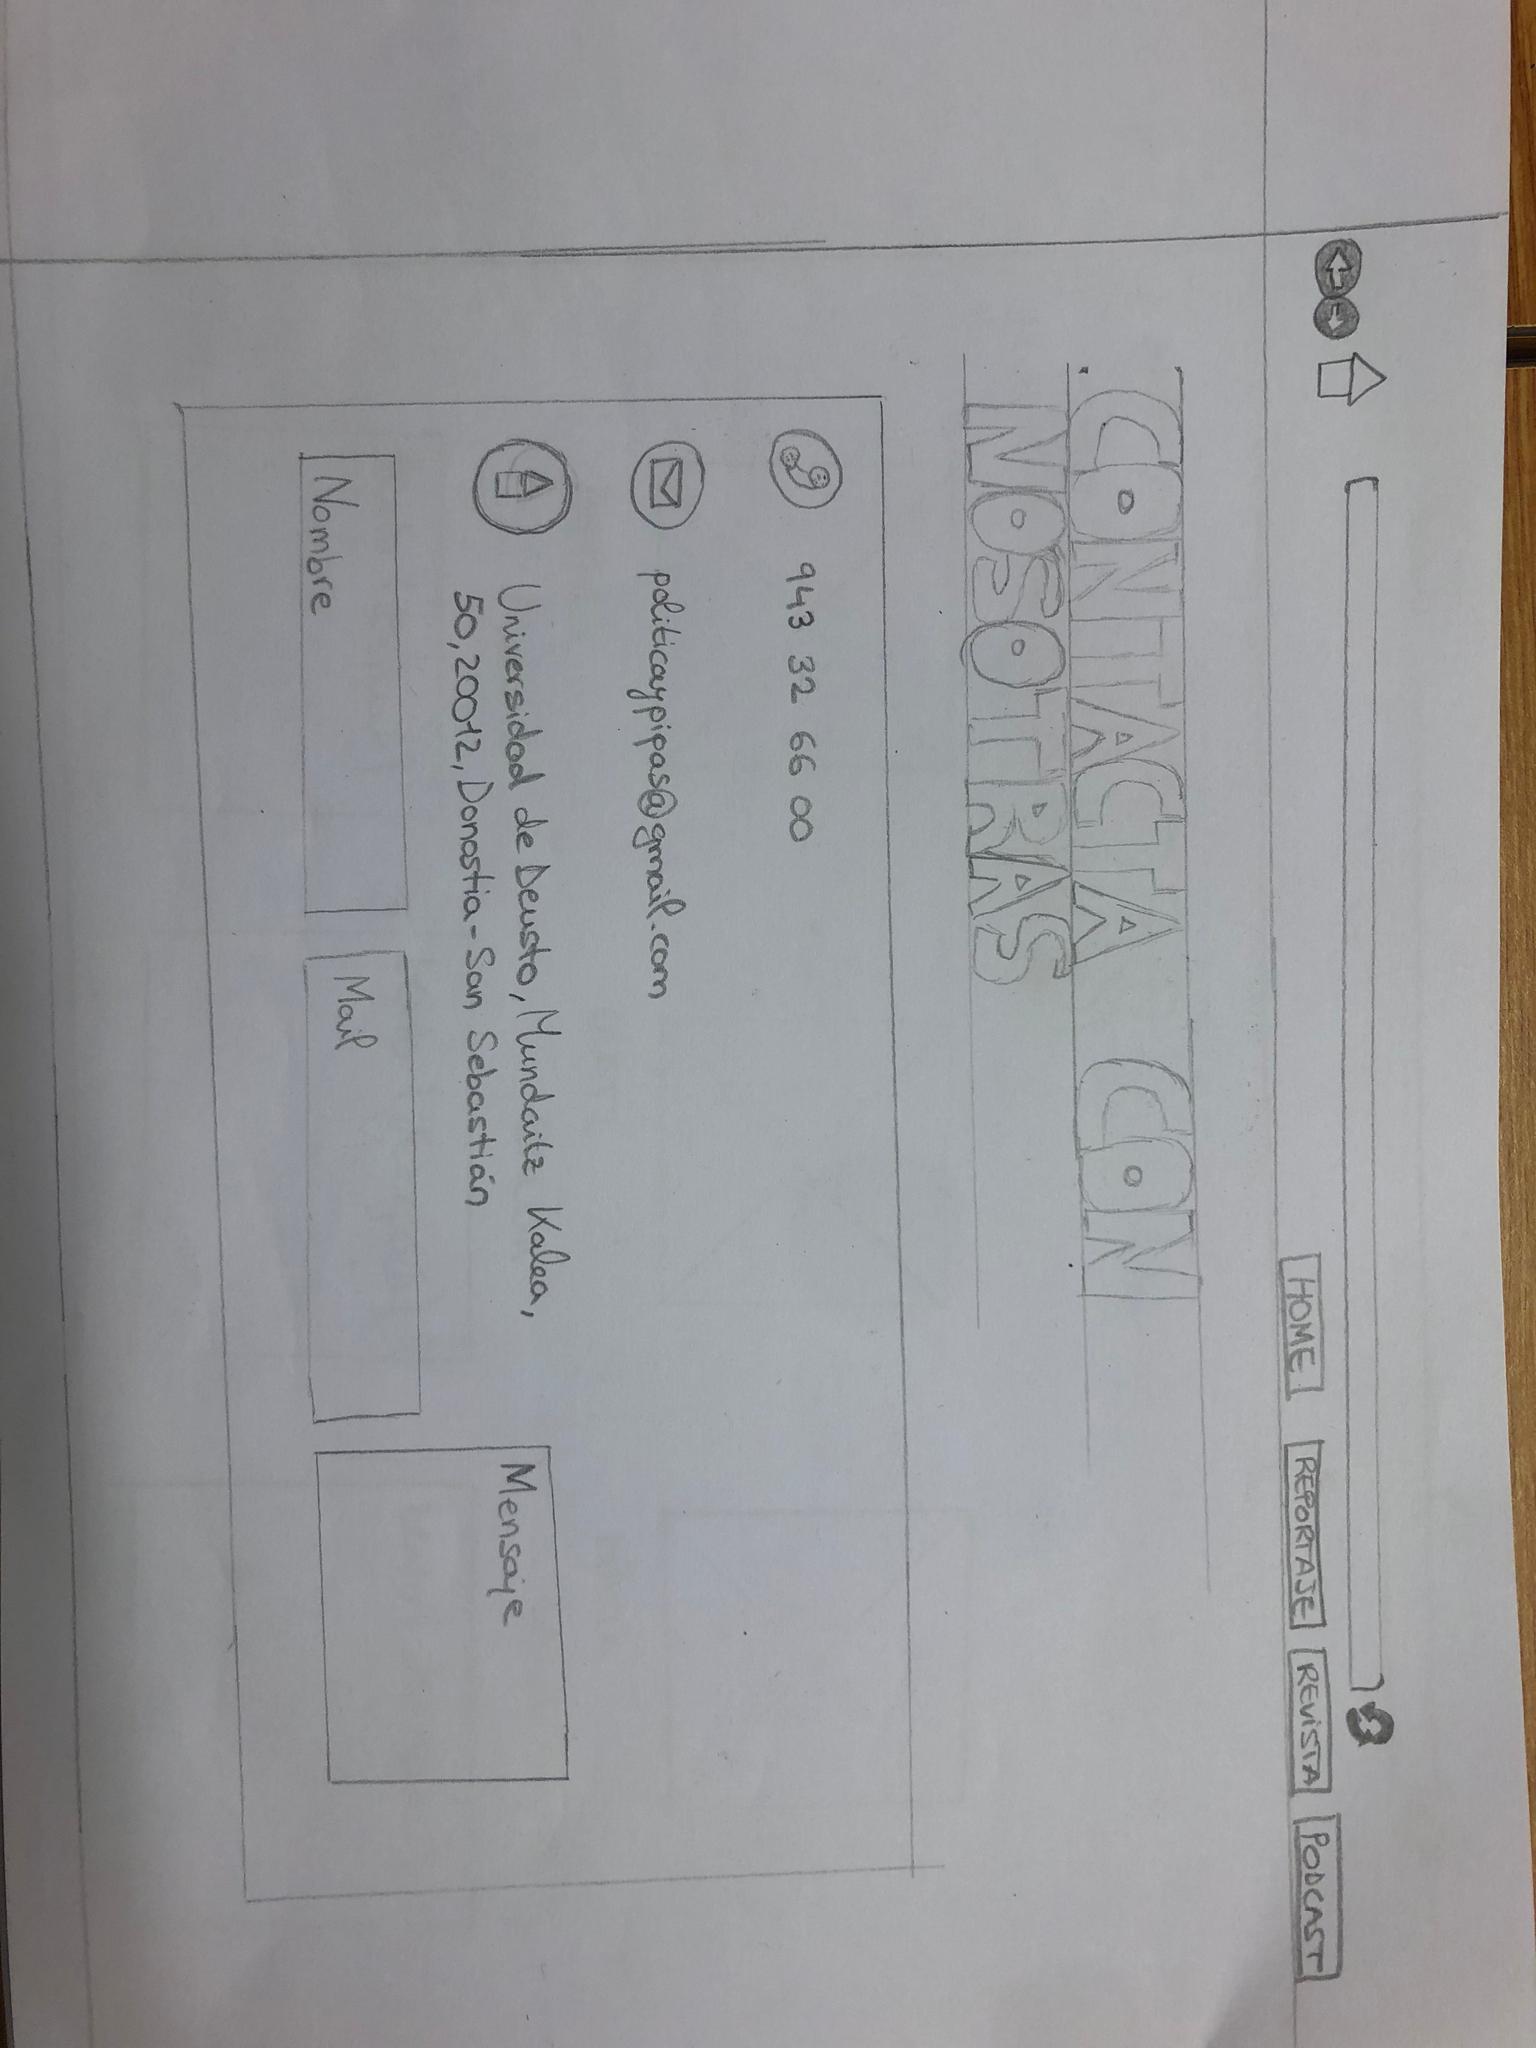 HOME REPORTAJE REVISTA PODCAST
CONTACTA CON
NOSOTRAS
943 32 66 00
politicaypipas@gmail.com
Universidad de Deusto, Mundaitz Kalea,
50, 20012, Donostia-San Sebastián
Mensaje
Nombre
Mail